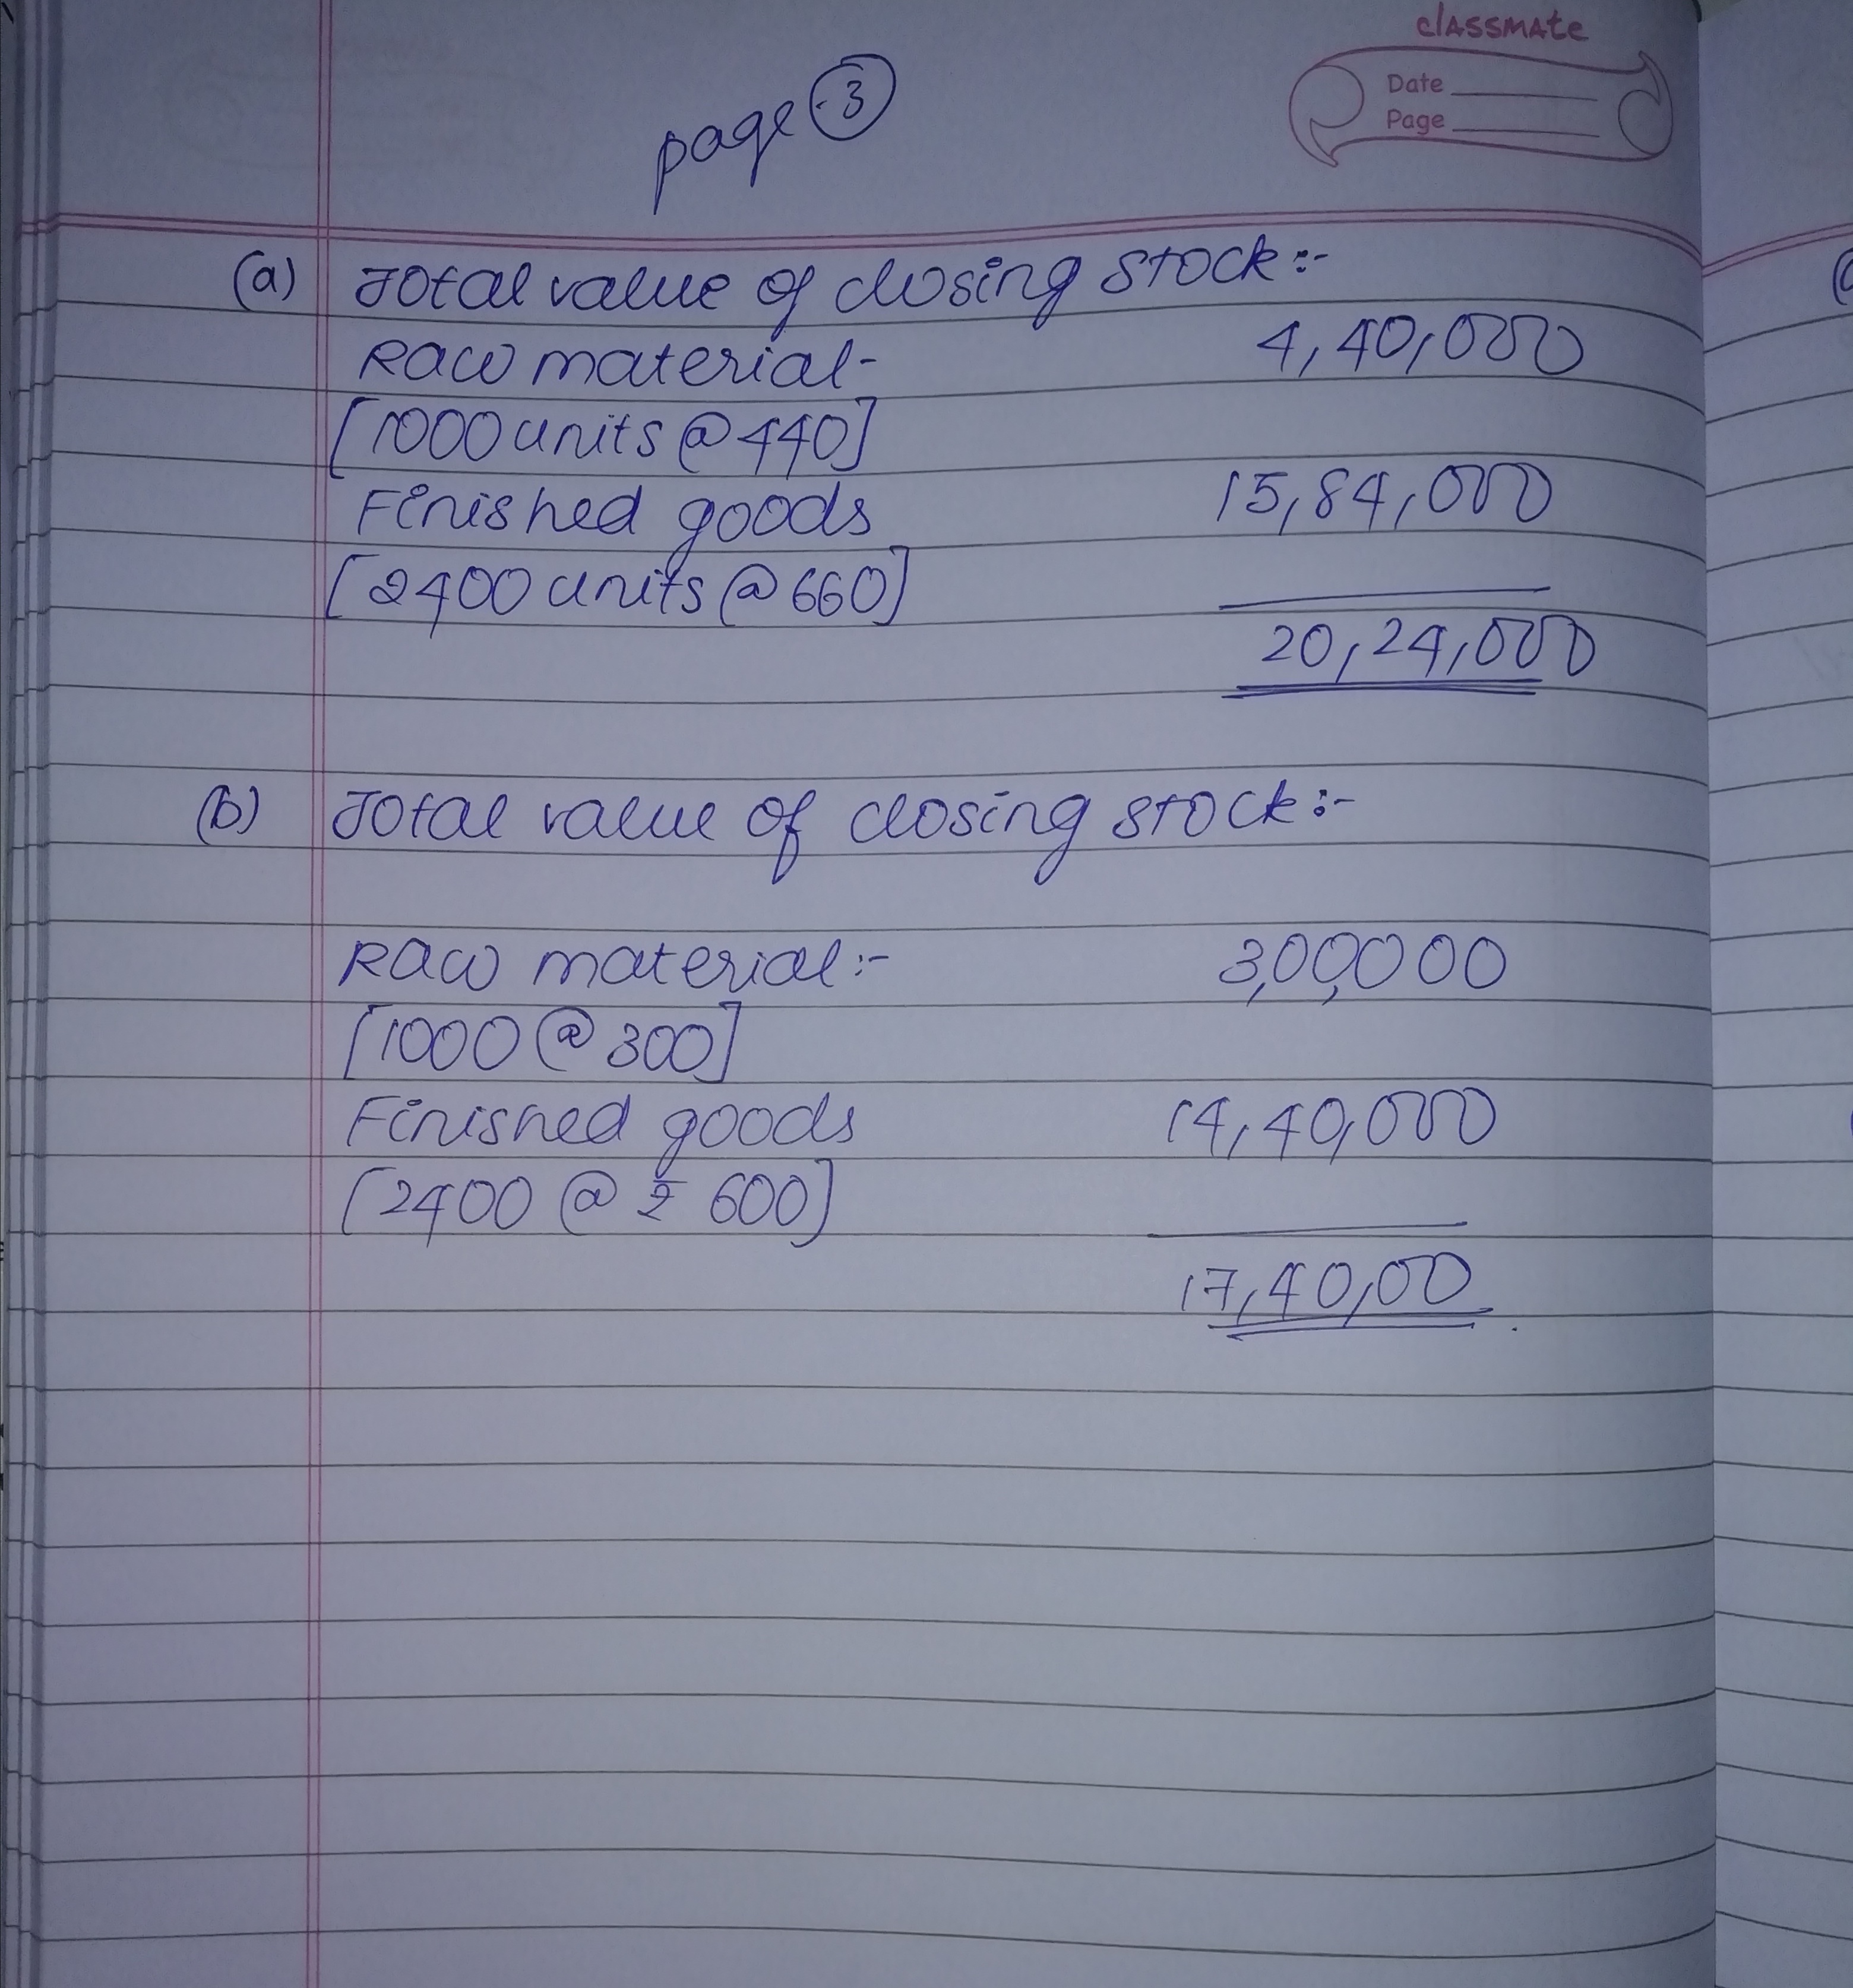 classmate
Date
Page
page 3
(a) Total value of closing stock:-
Raw material- 4,40,000
[1000 units @ 440]
Finished goods 15,84,000
[2400 units @ 660]
20,24,000
(b) Total value of closing stock:-
Raw material:- 3,00,000
[1000 @ 300]
Finished goods 14,40,000
[2400 @ ₹ 600]
17,40,00